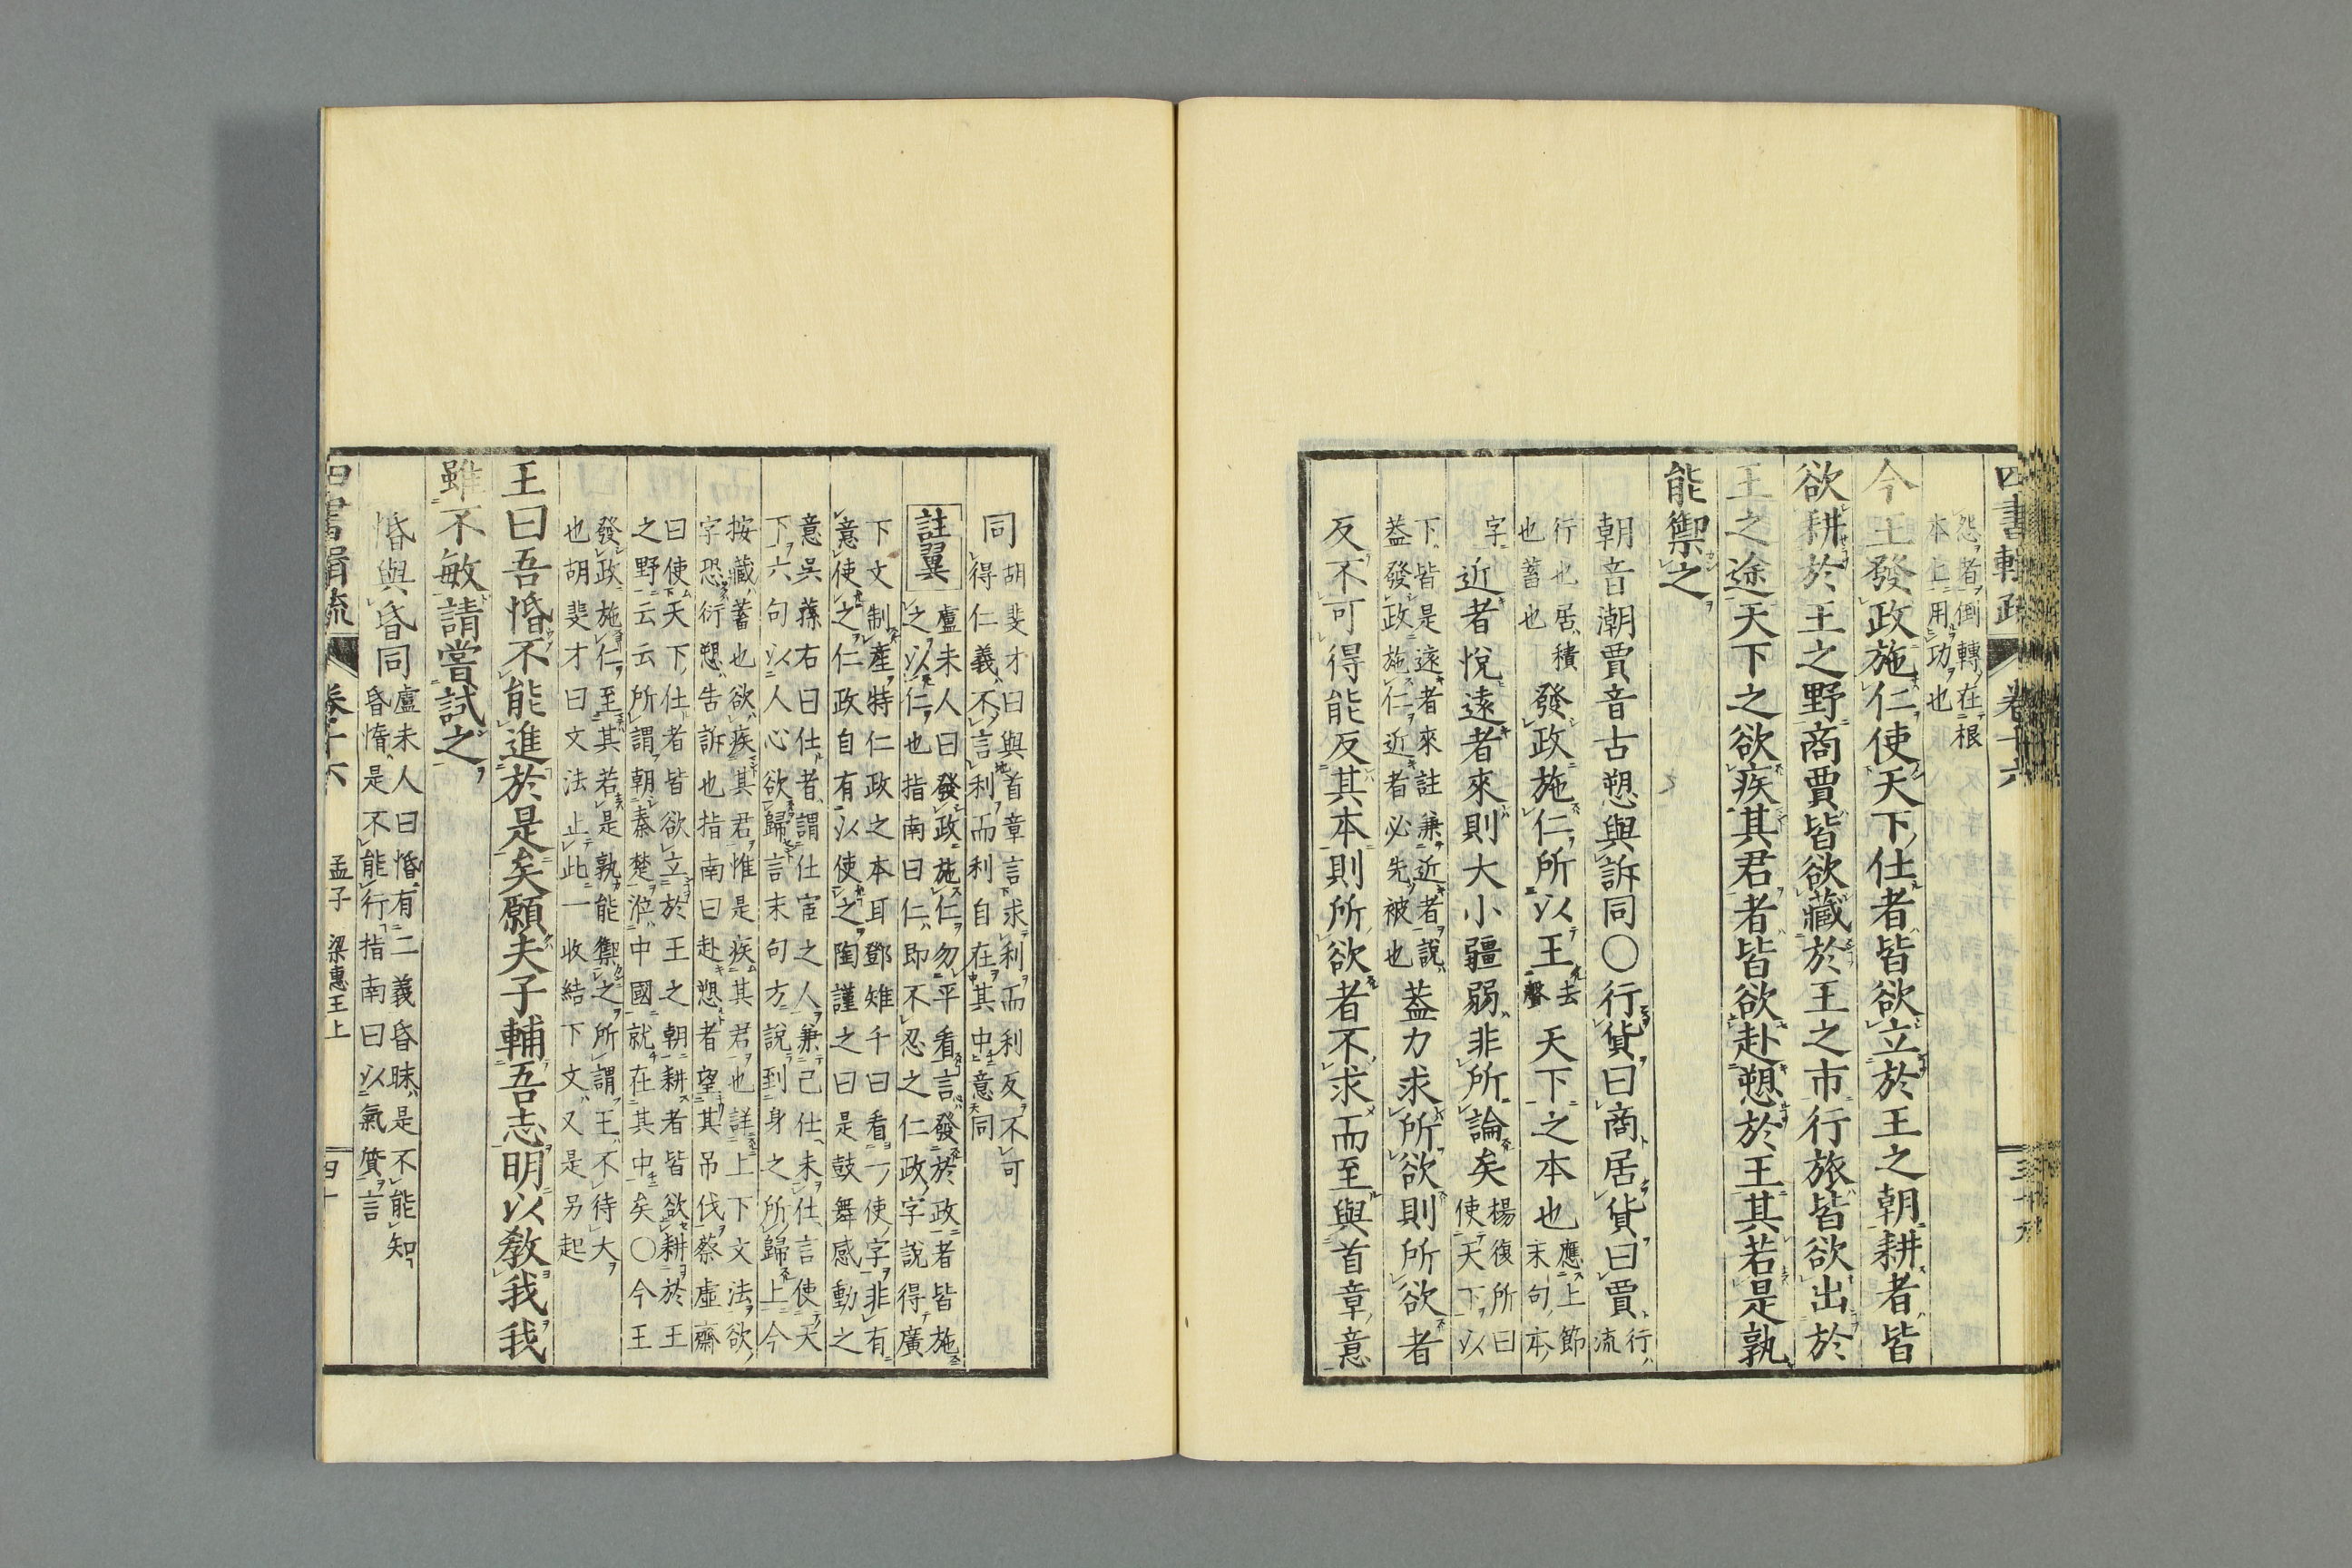 四書輯疏 卷十六
怨者倒轉在根
本上用功也
今王發政施仁使天下仕者皆欲立於王之朝耕者皆
欲耕於王之野商賈皆欲藏於王之市行旅皆欲出於
王之途天下之欲疾其君者皆欲赴愬於王其若是孰
能禦之
朝音潮賈音古愬與訴同〇行貨曰商居貨曰賈
行流
行也居積
也蓄也
發政施仁所以王
去
聲
天下之本也
應上節
末句本
字
近者悅遠者來則大小彊弱非所論矣
楊復所曰
使天下以
下皆是遠者來註兼近者說
蓋發政施仁近者必先被也
蓋力求所欲則所欲者
反不可得能反其本則所欲者不求而至與首章意
同
胡斐才曰與首章言求利而利反不可
得仁義不言利而利自在其中意同
註翼
盧未人曰發政施仁勿平看言發於政者皆施
之以仁也指南曰仁即不忍之仁政字說得廣
下文制產特仁政之本耳鄧雉千曰看一使字非有
意使之仁政自有以使之陶謹之曰是鼓舞感動之
意吳蓀右曰仕者謂仕宦之人兼己仕未仕言使天
下六句以人心欲歸言末句方說到身之所歸上今
按藏蓄也欲疾其君惟是疾其君也詳上下文法欲
字恐衍愬告訴也指南曰赴愬者望其吊伐蔡虛齋
曰使天下仕者皆欲立於王之朝耕者皆欲耕於王
之野云云所謂朝秦楚涖中國就在其中矣〇今王
發政施仁至其若是孰能禦之所謂王不待大
也胡斐才曰文法止此一收結下文又是另起
王曰吾惛不能進於是矣願夫子輔吾志明以教我我
雖不敏請嘗試之
惛與昏同
盧未人曰惛有二義昏昧是不能知
昏惰是不能行指南曰以氣質言
四書輯疏 卷十六 孟子 梁惠王上 四十